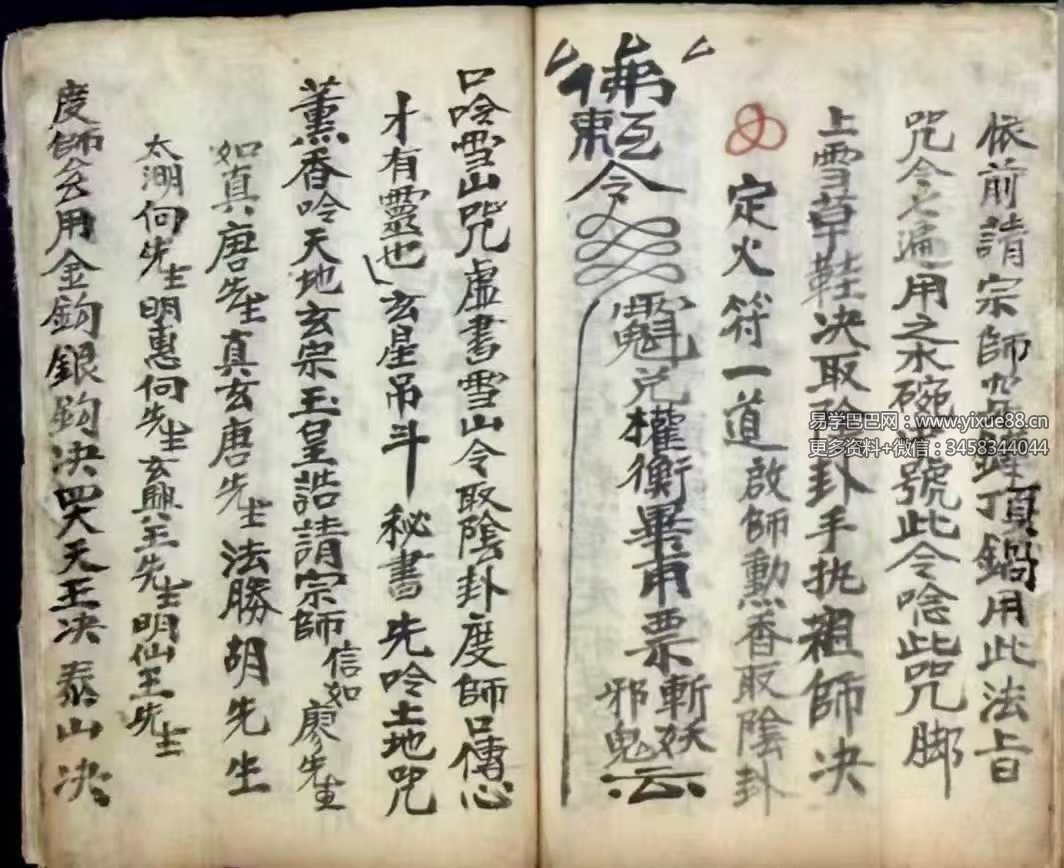 依前請宗師
頂鍋用此法旨
咒令七遍用之水碗
號此令唸此咒脚
上雪草鞋决取陰卦手执祖師决
定火符一道啟師勳香取陰卦
佛
令
兌權衡畢甫票斬妖邪鬼
口唅雪山咒虛書雪山令取陰卦度師口傳心
才有靈也玄星吊斗秘書先唅土地咒
薰香唅天地玄宗玉皇誥請宗師信如廖先生
如真唐先生真玄唐先生法勝胡先生
太湖何先生明惠何先生玄興王先生明仙王先生
度師会用金鈎銀鈎决四大天王决泰山决
易学巴巴网：www.yixue88.cn
更多资料+微信：3458344044